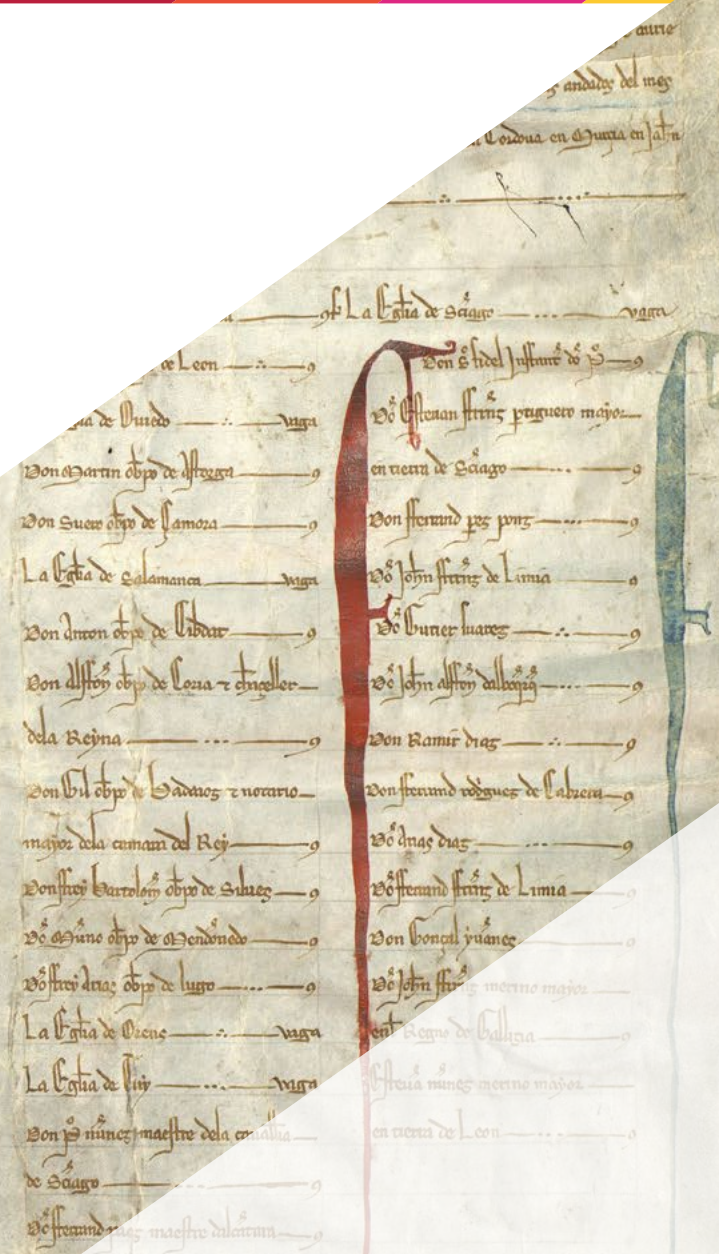 andados del mes
Cordoua en Murcia en Jahn
La Eglia de Sciago vaga
de Leon
de Ouiedo vaga
Don Martin obpo de Astorga
Don Suero obpo de Çamora
La Eglia de Salamanca vaga
Don Anton obpo de Cibdat
Don Alffon obpo de Coria τ chnçeller
dela Reyna
Don Gil obpo de Badaioz τ notario
mayor dela camara del Rey
Don ffrey Bartolom obpo de Silues
Do Muno obpo de Mendonedo
Do ffrey Arias obpo de lugo
La Eglia de Orens vaga
La Eglia de Tuy vaga
Don Po nunez maestre dela caualleria
de Sciago
Do fferrand paez maestre dalcantara
Do Esteuan fferrnz ptiguero mayor
en tierra de Sciago
Don fferrand perez ponz
Do Johan fferrnz de Limia
Do Gutier Suarez
Do Johan alffon
Don Ramir diaz
Don fferrand rodriguez de Cabrera
Do Arias diaz
Do fferrand fferrnz de Limia
Don Gonçal yuanes
Do Johan fferrnz merino mayor
enel Regno de Gallizia
Esteuan nunez merino mayor
en tierra de Leon